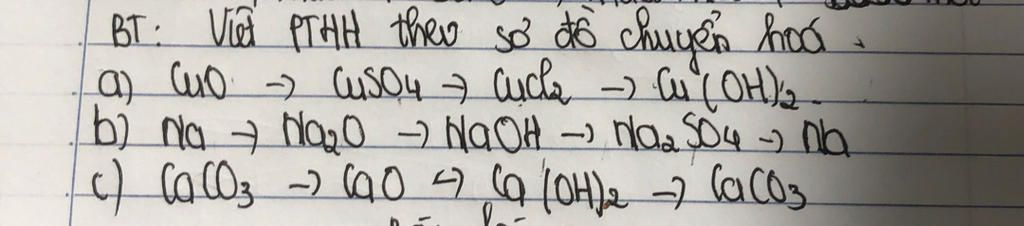 BT: Viết PTHH theo sơ đồ chuyển hoá.
a) CuO → CuSO4 → CuCl2 → Cu(OH)2.
b) Na → Na2O → NaOH → Na2SO4 → Na
c) CaCO3 → CaO → Ca(OH)2 → CaCO3